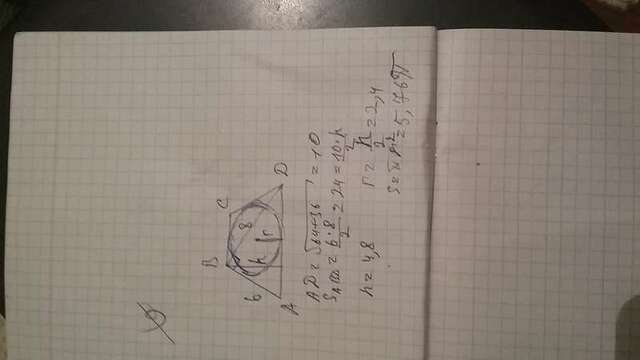 B C
6 h r 8
A D
AD = √64+36 = 10
S = 6·8/2 = 24 = 10·h/2
h = 4,8
r = h/2 = 2,4
S = πr² = 5,76π